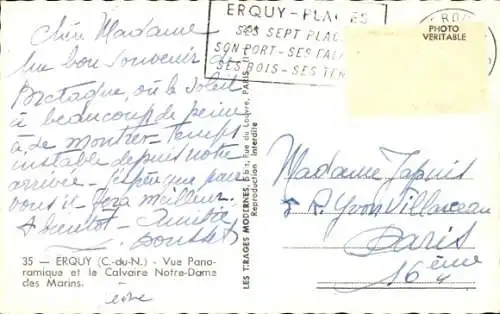 Chère Madame
Un bon souvenir de
Bretagne, où le soleil
a beaucoup de peine
à se montrer - Temps
instable depuis notre
arrivée - J'espère que pour
vous il fera meilleur.
A bientôt - Amitiés
35 — ERQUY (C.-du-N.) - Vue Pano-
ramique et le Calvaire Notre-Dame
des Marins.
LES TIRAGES MODERNES, 6 bis, Rue du Louvre, PARIS (1
Reproduction Interdite
ERQUY - PLAGES
SES SEPT PLAG
SON PORT - SES FALA
SES BOIS - SES TEN
PHOTO
VERITABLE
Madame
R. Yvon Villarceau
Paris
16ème